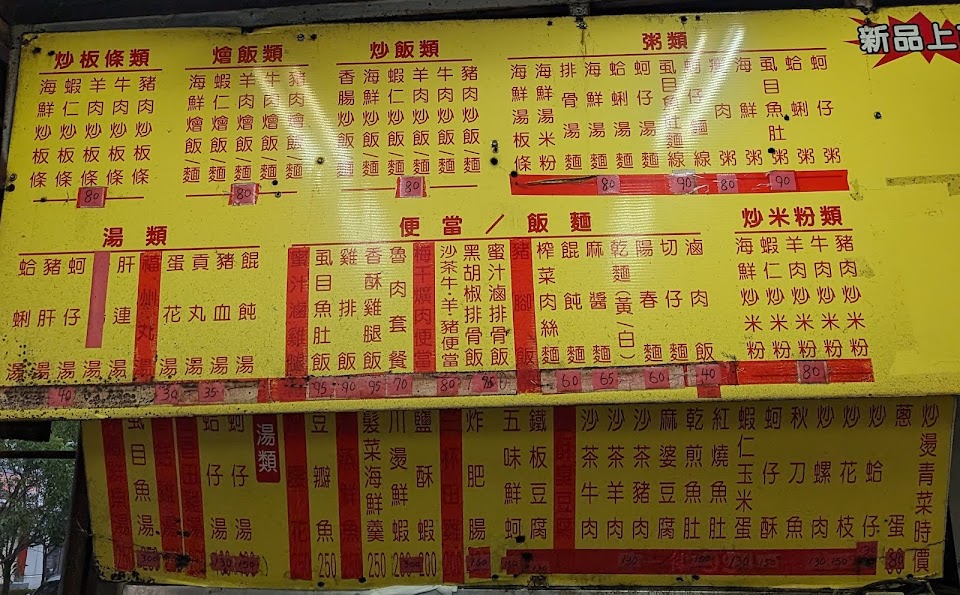 新品上
炒板條類
海鮮炒板條
蝦仁炒板條
羊肉炒板條
牛肉炒板條
豬肉炒板條
80
燴飯類
海鮮燴飯/麵
蝦仁燴飯/麵
羊肉燴飯/麵
牛肉燴飯/麵
豬肉燴飯/麵
80
炒飯類
香腸炒飯/麵
海鮮炒飯/麵
蝦仁炒飯/麵
羊肉炒飯/麵
牛肉炒飯/麵
豬肉炒飯/麵
80
粥類
海鮮湯板條
海鮮湯米粉
排骨湯麵
海鮮湯麵
蛤蜊湯麵
蚵仔湯麵
虱目魚肚麵線
蚵仔麵線
瘦肉粥
海鮮粥
虱目魚肚粥
蛤蜊粥
蚵仔粥
80
90
80
90
湯類
蛤蜊湯
豬肝湯
蚵仔湯
湯
肝連湯
福州丸湯
蛋花湯
貢丸湯
豬血湯
餛飩湯
40
30
35
便當/飯麵
蜜汁滷雞腿
虱目魚肚飯
雞排飯
香酥雞腿飯
魯肉套餐
梅干爌肉便當
沙茶牛‧羊‧豬便當
黑胡椒排骨飯
蜜汁滷排骨飯
豬腳飯
榨菜肉絲麵
餛飩麵
麻醬麵
乾麵(黃/白)
陽春麵
切仔麵
滷肉飯
95
90
95
70
80
60
65
60
40
炒米粉類
海鮮炒米粉
蝦仁炒米粉
羊肉炒米粉
牛肉炒米粉
豬肉炒米粉
80
虱目魚湯
蛤仔湯
蚵仔湯
湯類
豆瓣魚
250
髮菜海鮮羹
250
川燙鮮蝦
鹽酥蝦
200
炸肥腸
五味鮮蚵
鐵板豆腐
沙茶牛肉
沙茶羊肉
沙茶豬肉
麻婆豆腐
乾煎魚肚
紅燒魚肚
蝦仁玉米蛋
蚵仔酥
秋刀魚
炒螺肉
炒花枝
炒蛤仔
蔥蛋
炒燙青菜時價